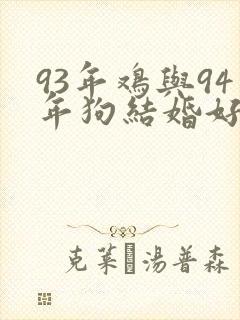 93年鸡與94
年狗結婚好
克莱 湯普森